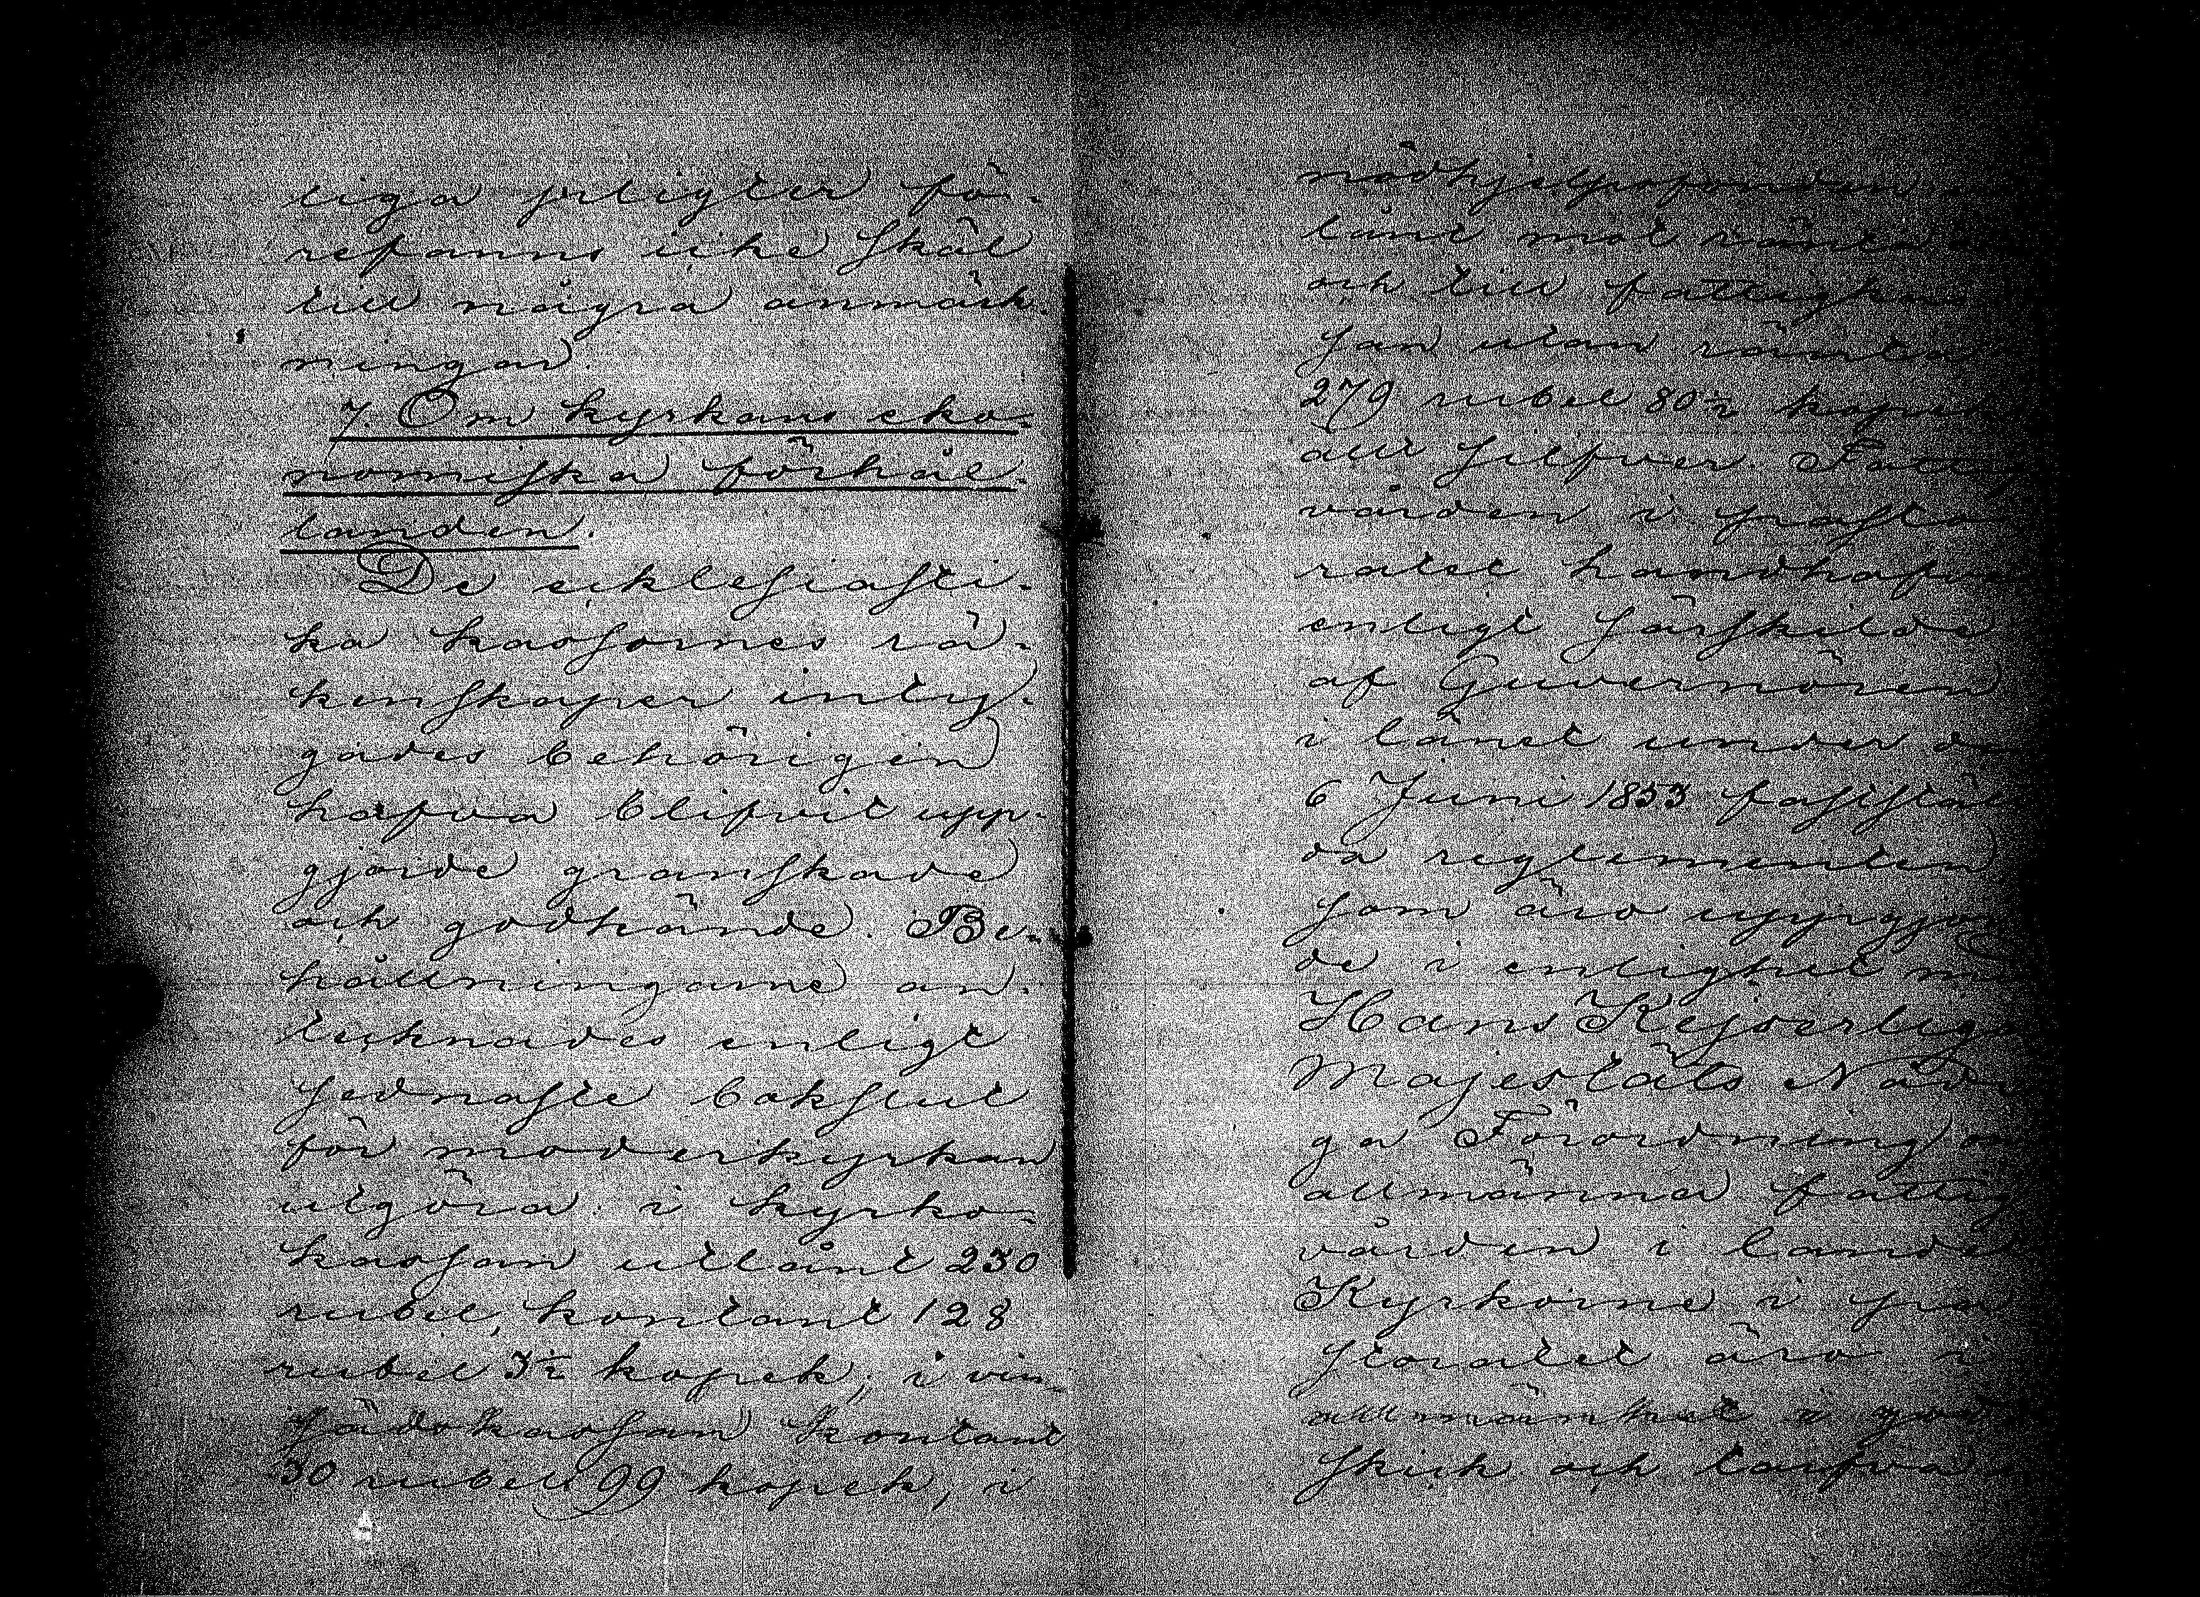 liga pligter fö-
refanns icke skäl
till några anmärk-
ningar.
7. Om kyrkans eko-
nomiska förhål-
landen.
De ecklesiasti-
ka kassornes rä-
kenskaper intyg-
gades behörigen
hafva blifvit upp-
gjorde granskade
och godkände. Be-
hållningarne an-
tecknades enligt
sednaste bokslut
för moderkyrkan
utgöra i kyrko-
kassan utlånt 230
rubel, kontant 128
rubel 3½ kopek; i vin-
sädskassan kontant
30 rubel 99 kopek, i
nödhjelpsfonden
lånt mot ränta
och till fattigkas
san utan ränta
279 rubel 80½ kopek
allt silfver. Fattig
vården i pasto
ratet handhafves
enligt särskilde
af Guvernören
i länet under den
6 Juni 1853 fastställ
da reglementen
som äro uppgjor
de i enlighet med
Hans Kejserliga
Majestäts Nådi
ga Förordning om
allmänna fattig
vården i landet
Kyrkorne i pa
storatet äro i
allmänhet i godt
skick och tarfva